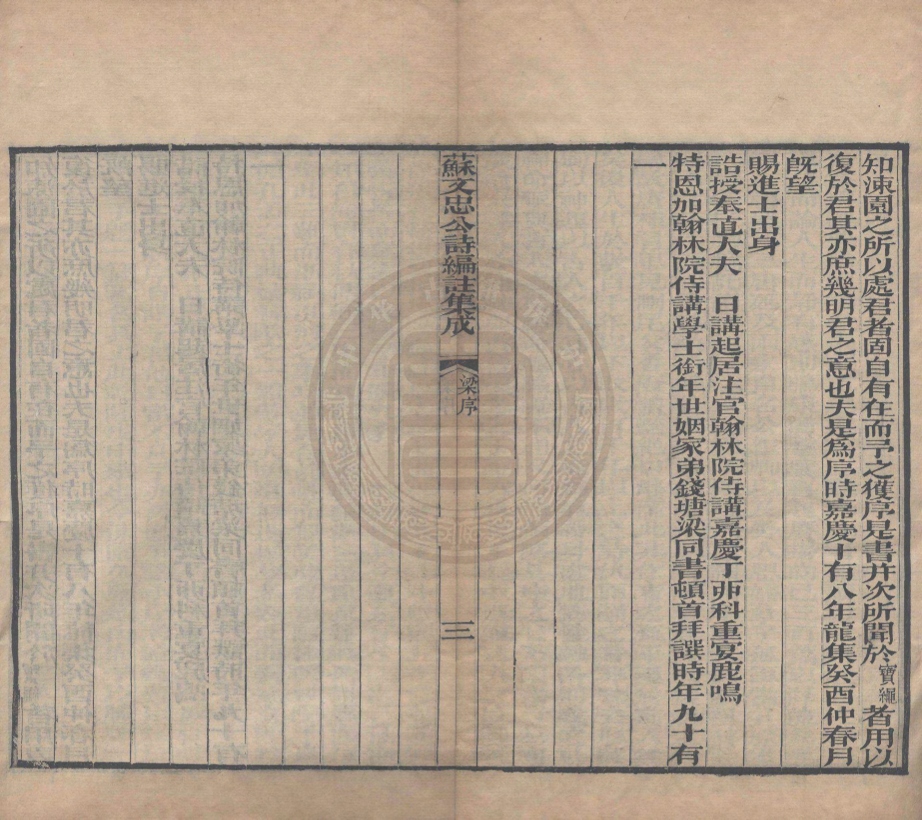 知涑園之所以處君者固自有在而予之獲序是書幷次所聞於寶繩者用以
復於君其亦庶幾明君之意也夫是爲序時嘉慶十有八年龍集癸酉仲春月
旣望
賜進士出身
誥授奉直大夫　日講起居注官翰林院侍講嘉慶丁卯科重宴鹿鳴
特恩加翰林院侍講學士銜年世姻家弟錢塘梁同書頓首拜譔時年九十有
一
蘇文忠公詩編註集成　梁序　三